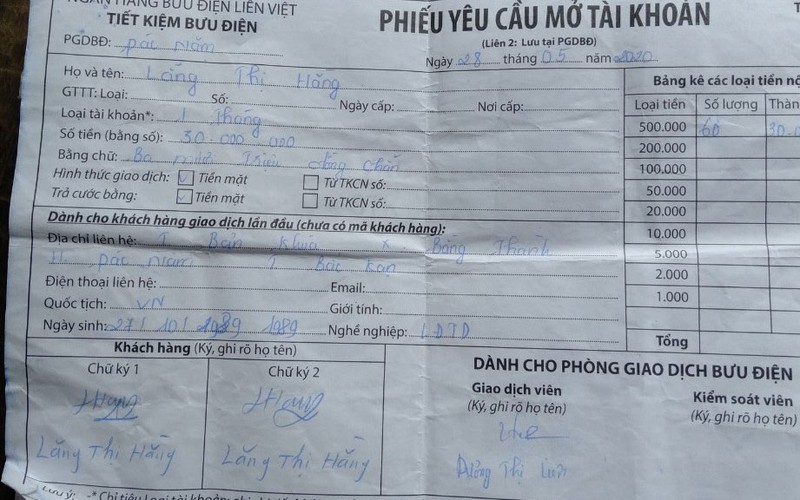 NGÂN HÀNG BƯU ĐIỆN LIÊN VIỆT
TIẾT KIỆM BƯU ĐIỆN
PGDBĐ: Pác Nặm
PHIẾU YÊU CẦU MỞ TÀI KHOẢN
(Liên 2: Lưu tại PGDBĐ)
Ngày 28 tháng 05 năm 2020
Họ và tên: Lăng Thị Hằng
GTTT: Loại: Số: Ngày cấp: Nơi cấp:
Loại tài khoản*: 1 Tháng
Số tiền (bằng số): 30.000.000
Bằng chữ: Ba mươi Triệu đồng chẵn
Hình thức giao dịch: Tiền mặt Từ TKCN số:
Trả cước bằng: Tiền mặt Từ TKCN số:
Dành cho khách hàng giao dịch lần đầu (chưa có mã khách hàng):
Địa chỉ liên hệ: T. Bản Khúa X Bằng Thành
H. Pác Nặm T Bắc Kạn
Điện thoại liên hệ: Email:
Quốc tịch: VN Giới tính:
Ngày sinh: 27/ 10/ 1989 1989 Nghề nghiệp: LĐTD
Bảng kê các loại tiền nộ
Loại tiền Số lượng Thàn
500.000 60 30.
200.000
100.000
50.000
20.000
10.000
5.000
2.000
1.000
Tổng
Khách hàng (Ký, ghi rõ họ tên)
Chữ ký 1 Chữ ký 2
Hằng Hằng
Lăng Thị Hằng Lăng Thị Hằng
DÀNH CHO PHÒNG GIAO DỊCH BƯU ĐIỆN
Giao dịch viên Kiểm soát viên
(Ký, ghi rõ họ tên) (Ký, ghi rõ họ tên)
Dương Thị
Lưu ý: -* Chỉ tiêu Loại tài khoản: